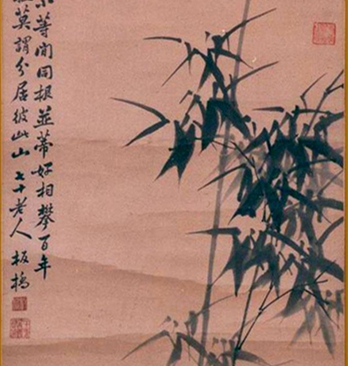 等閒同根並蒂好相攀百年
莫謂分居彼此山七十老人板橋